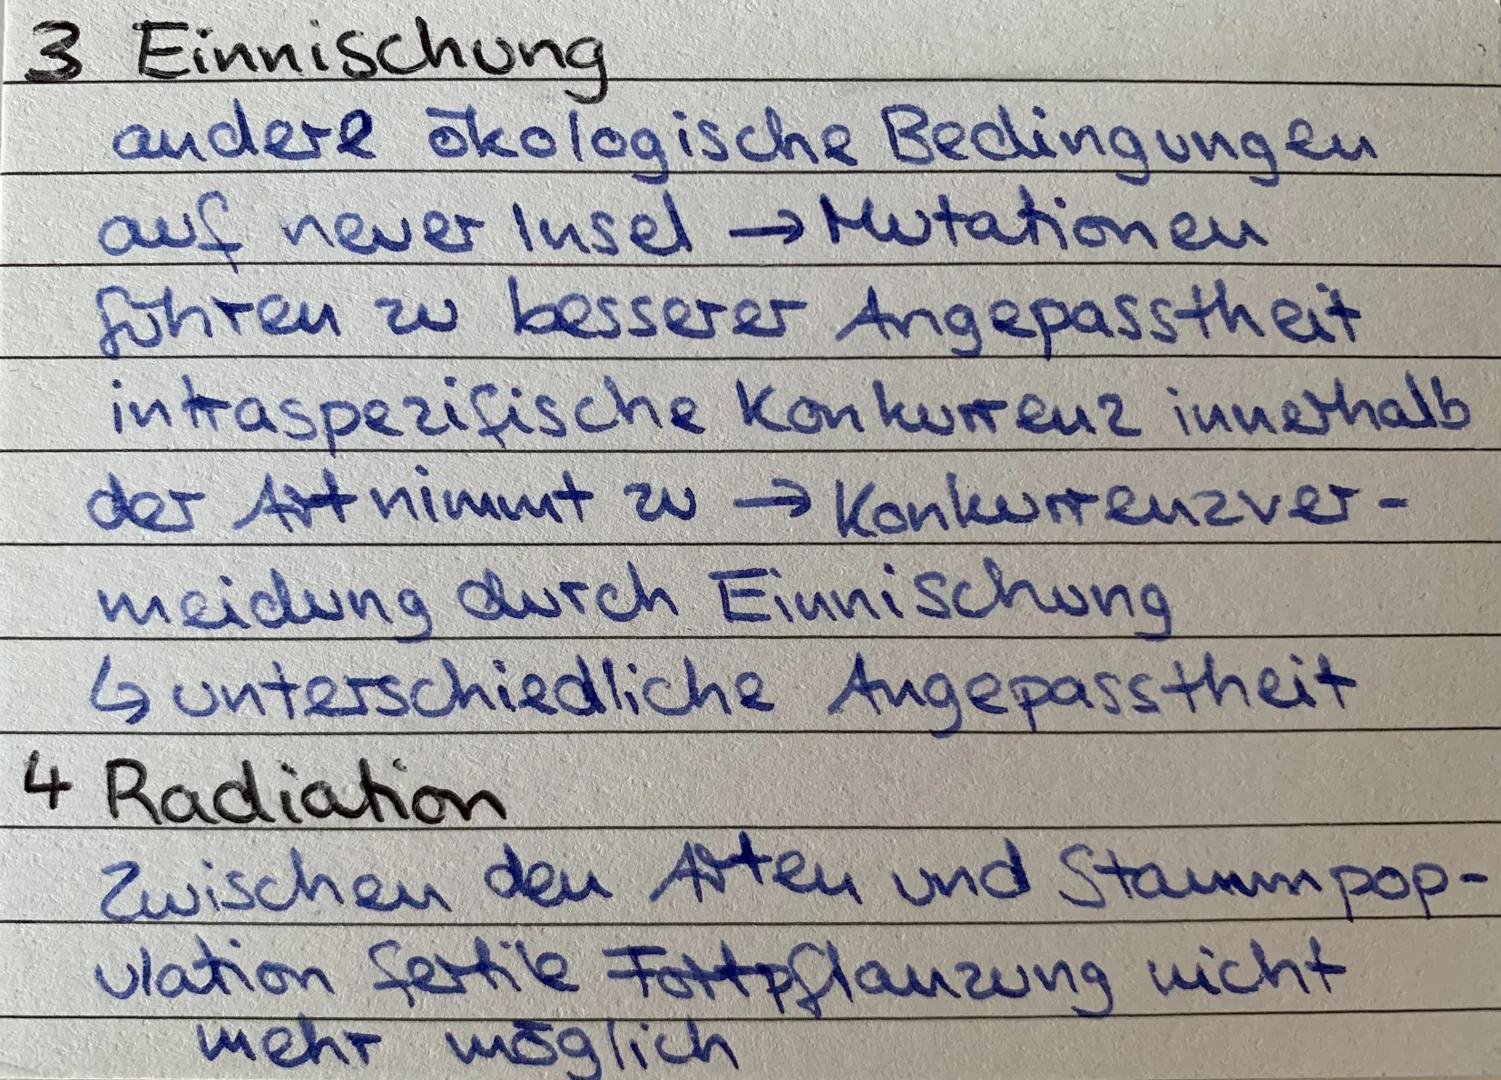 3 Einnischung
andere ökologische Bedingungen
auf neuer Insel → Mutationen
führen zu besserer Angepasstheit
intraspezifische Konkurrenz innerhalb
der Art nimmt zu → Konkurrenzver-
meidung durch Einnischung
↳ unterschiedliche Angepasstheit
4 Radiation
Zwischen den Arten und Stammpop-
ulation fertile Fortpflanzung nicht
mehr möglich